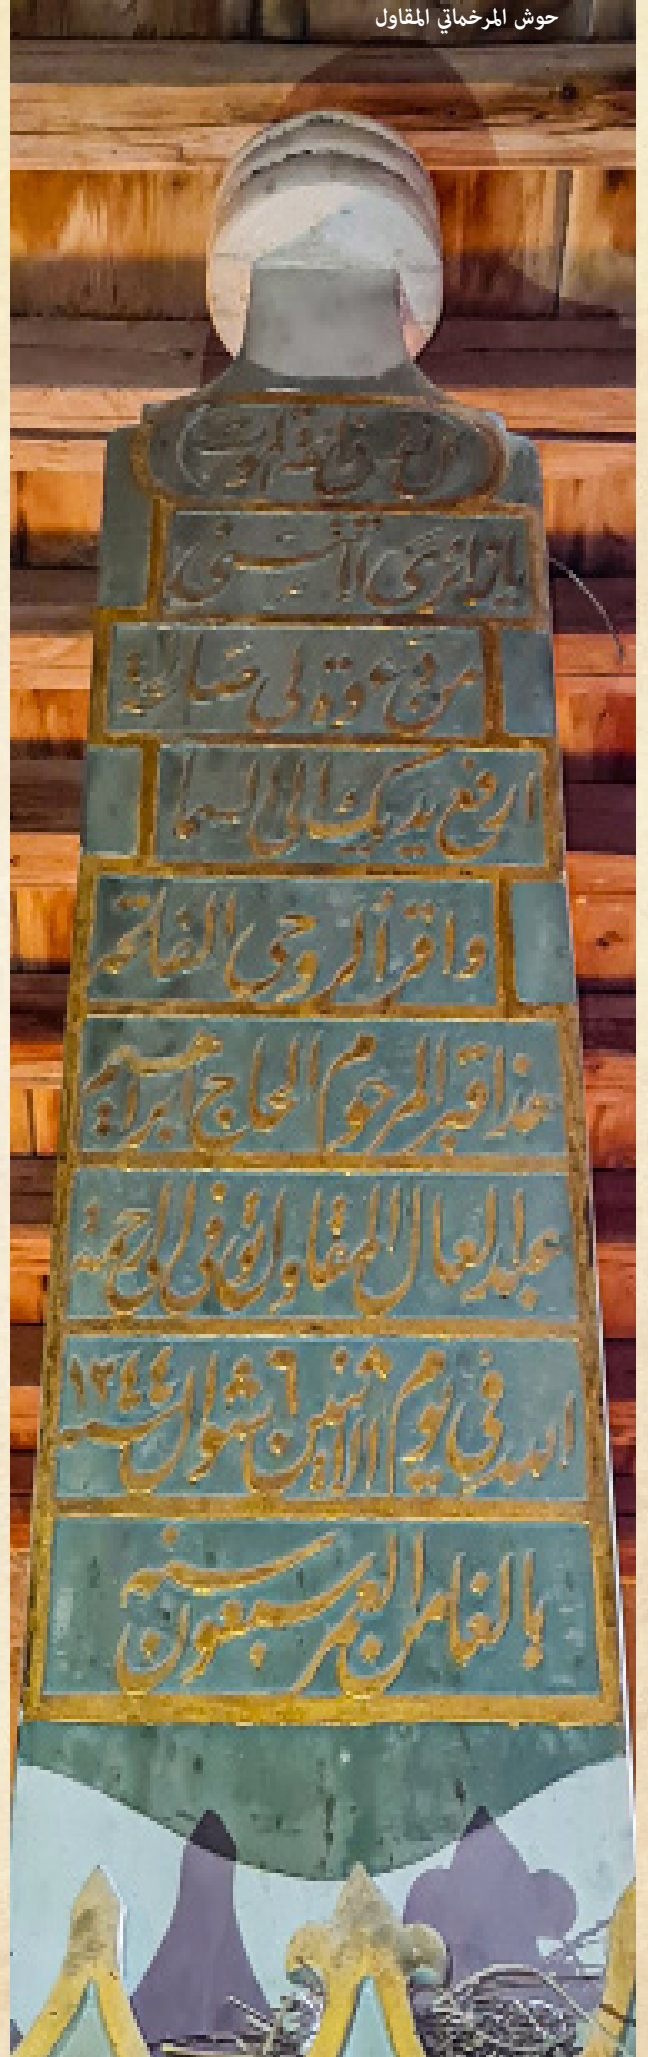 حوش المرخماتي المقاول
كل نفس ذائقة الموت
يازائري لا تنسني
من دعوة لي صالحة
ارفع يديك الى السما
واقرأ لروحي الفاتحه
هذا قبر المرحوم الحاج ابراهيم
عبد العال المقاول توفى الى رحمة
الله في يوم الاثنين ٦ شوال سنه ١٣٤٤
بالغا من العمر سبعون سنه